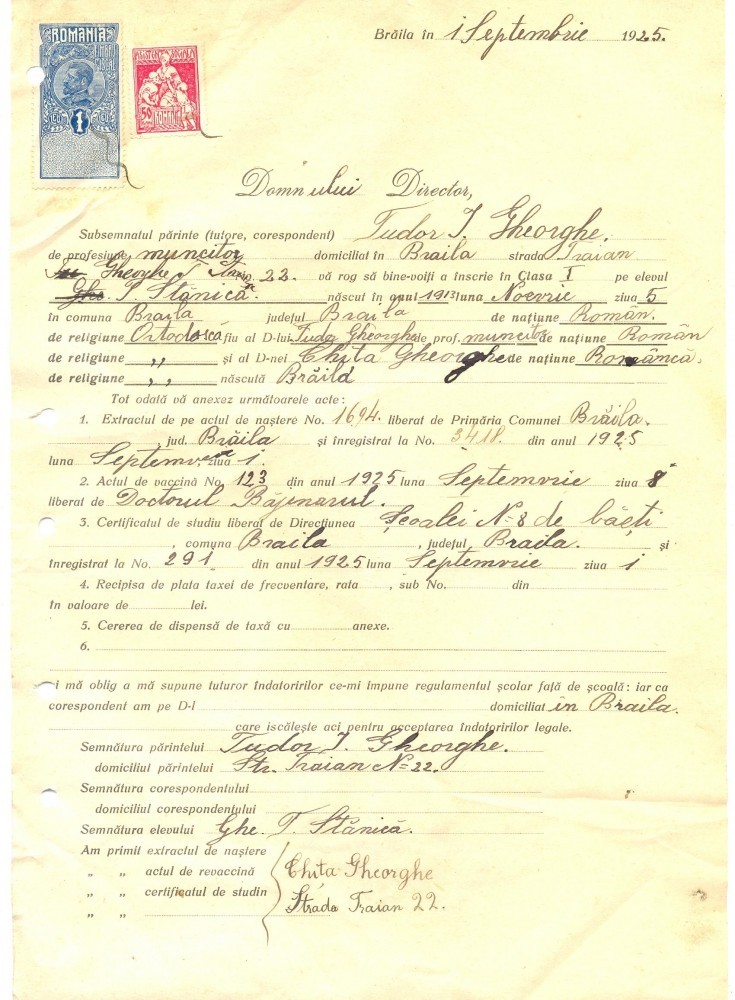 ROMANIA
TIMBRU FISCAL
1
50
ROMANIA
Brăila în 1 Septembrie 1925.
Domnului Director,
Subsemnatul părinte (tutore, corespondent) Tudor I. Gheorghe.
de profesiune muncitor domiciliat în Braila strada Traian
Gheorghe T. No. 22. vă rog să bine-voiți a înscrie în Clasa I pe elevul
Ghe. T. Stănică născut în anul 1913 luna Noevrie ziua 5
în comuna Braila județul Braila de națiune Român.
de religiune Ortodoscă fiu al D-lui Tudor Gheorghe de prof. muncitor de națiune Român
de religiune „ și al D-nei Chița Gheorghe de națiune Românca.
de religiune „ născută Brăila
Tot odată vă anexez următoarele acte:
1. Extractul de pe actul de naștere No. 1694. liberat de Primăria Comunei Brăila.
, jud. Brăila și înregistrat la No. 3418. din anul 1925
luna Septemvrie ziua 1.
2. Actul de vaccină No. 123 din anul 1925 luna Septemvrie ziua 8
liberat de Doctorul Băjenarul.
3. Certificatul de studiu liberat de Direcțiunea Școalei No 8 de băeți
, comuna Braila , județul Braila. și
înregistrat la No. 291 din anul 1925 luna Septemvrie ziua 1
4. Recipisa de plata taxei de frecventare, rata , sub No. din
în valoare de lei.
5. Cererea de dispensă de taxă cu anexe.
6.
și mă oblig a mă supune tuturor îndatoririlor ce-mi impune regulamentul școlar față de școală: iar ca
corespondent am pe D-l domiciliat în Braila.
care iscălește aci pentru acceptarea îndatoririlor legale.
Semnătura părintelui Tudor I. Gheorghe.
domiciliul părintelui Str. Traian No 22.
Semnătura corespondentului
domiciliul corespondentului
Semnătura elevului Ghe. T. Stănică.
Am primit extractul de naștere
„ „ actul de revaccină Chița Gheorghe
„ „ certificatul de studiu Strada Traian 22.
„ „